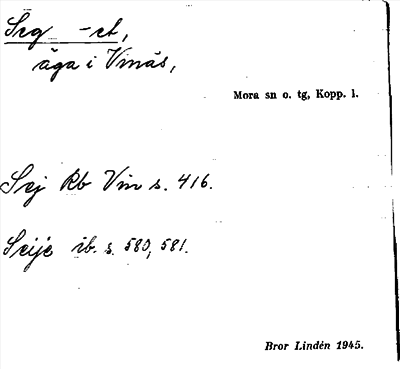 Seg -et,
äga i Vinäs,
Mora sn o. tg, Kopp. l.
Sej Rb Vin s. 416.
Seije ib. s. 580, 581.
Bror Lindén 1945.